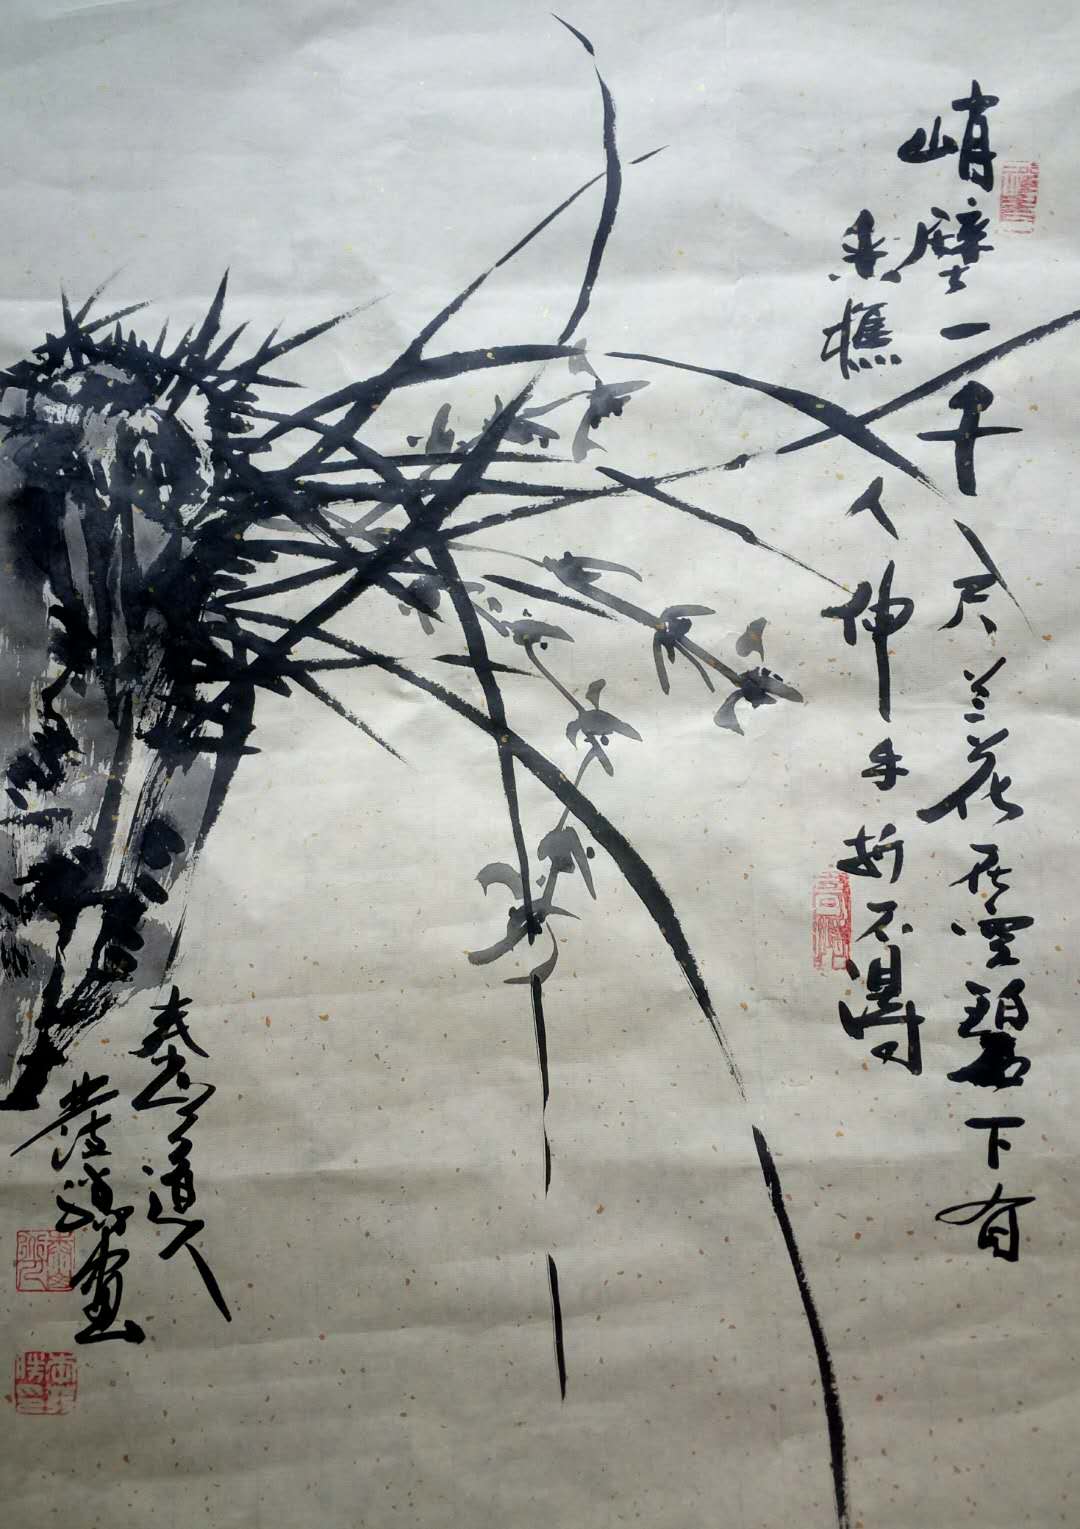 峭壁一千尺兰花在空碧下有
采樵人伸手折不得
泰山道人
画